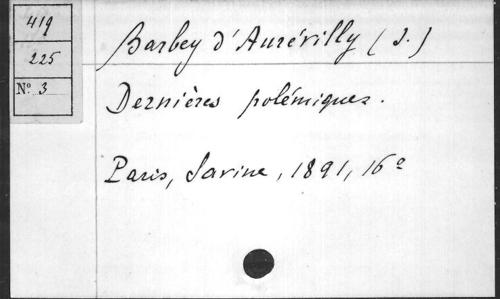 419
225
Nº 3
Barbey d'Aurévilly (J.)
Dernières polémiques.
Paris, Savine, 1891, 16º